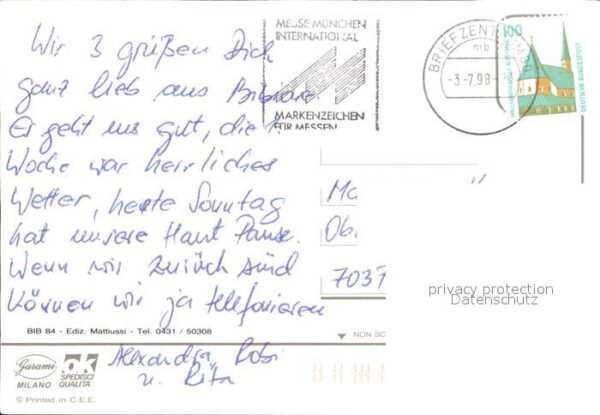 Wir 3 grüßen Dich
ganz lieb aus Bibione.
Er geht uns gut, die 1.
Woche war herrliches
Wetter, heute Sonntag
hat unsere Haut Pause.
Wenn wir zurück sind
können wir ja telefonieren
Alexandra Robi
u. Rita
MESSE MÜNCHEN
INTERNATIONAL
MARKENZEICHEN
FÜR MESSEN
BRIEFZENT
mb
-3.-7.98-
100
DEUTSCHE BUNDESPOST
7031
privacy protection
Datenschutz
BIB 84 - Ediz. Mattiussi - Tel. 0431 / 50308
NON SC
Garami
MILANO
ok
SPEDISCI
QUALITA'
© Printed in C.E.E.